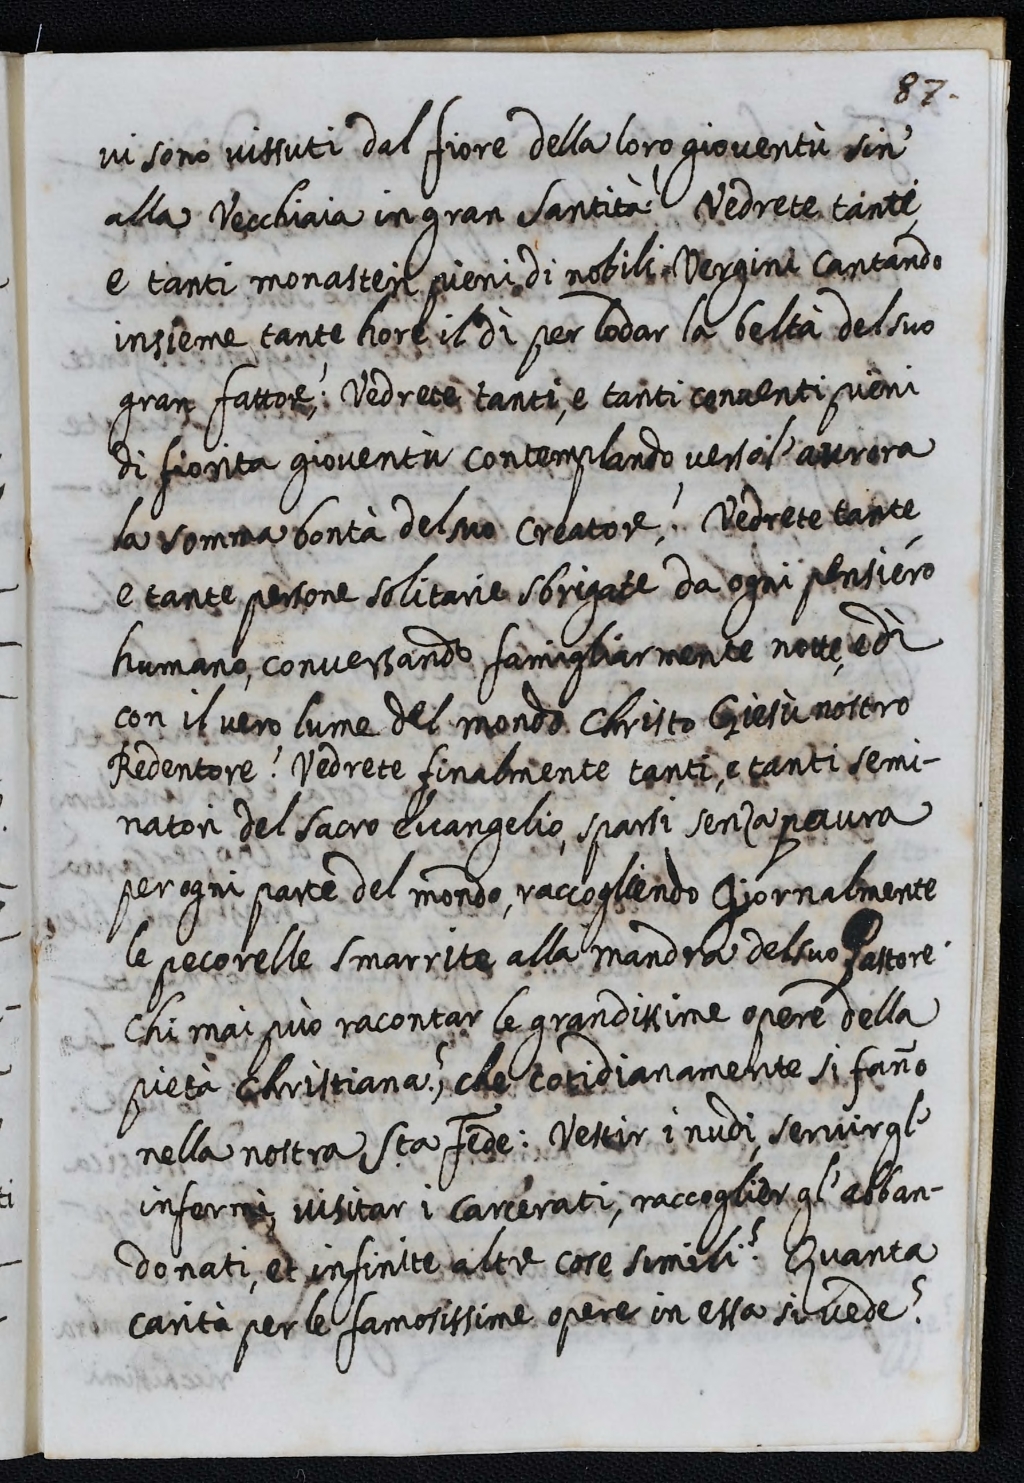 87.
vi sono vissuti dal fiore della loro gioventù sin'
alla Vecchiaia in gran Santità! Vedrete tanti,
e tanti monasterij pieni di nobili Vergini Cantando
insieme tante hore il dì per lodar la beltà del suo
gran fattore! Vedrete tanti, e tanti conventi pieni
di fiorita gioventù Contemplando verso l'aurora
la somma bontà del suo Creatore! Vedrete tante
e tante persone solitarie sbrigate da ogni pensiero
humano, conversando famigliarmente notte, e dì
con il vero lume del mondo Christo Giesù nostro
Redentore! Vedrete finalmente tanti, e tanti semi-
natori del Sacro Evangelio, sparsi senza paura
per ogni parte del mondo, raccogliendo Giornalmente
le pecorelle smarrite alla mandra del suo Pastore
Chi mai può racontar le grandissime opere della
pietà Christiana?, che cotidianamente si fañno
nella nostra Sta Fede: Vestir i nudi, servir gl'
infermi, visitar i Carcerati, raccoglier gl'abban-
donati, et infinite altre cose simili? Quanta
carità per le famosissime opere in essa si vede?